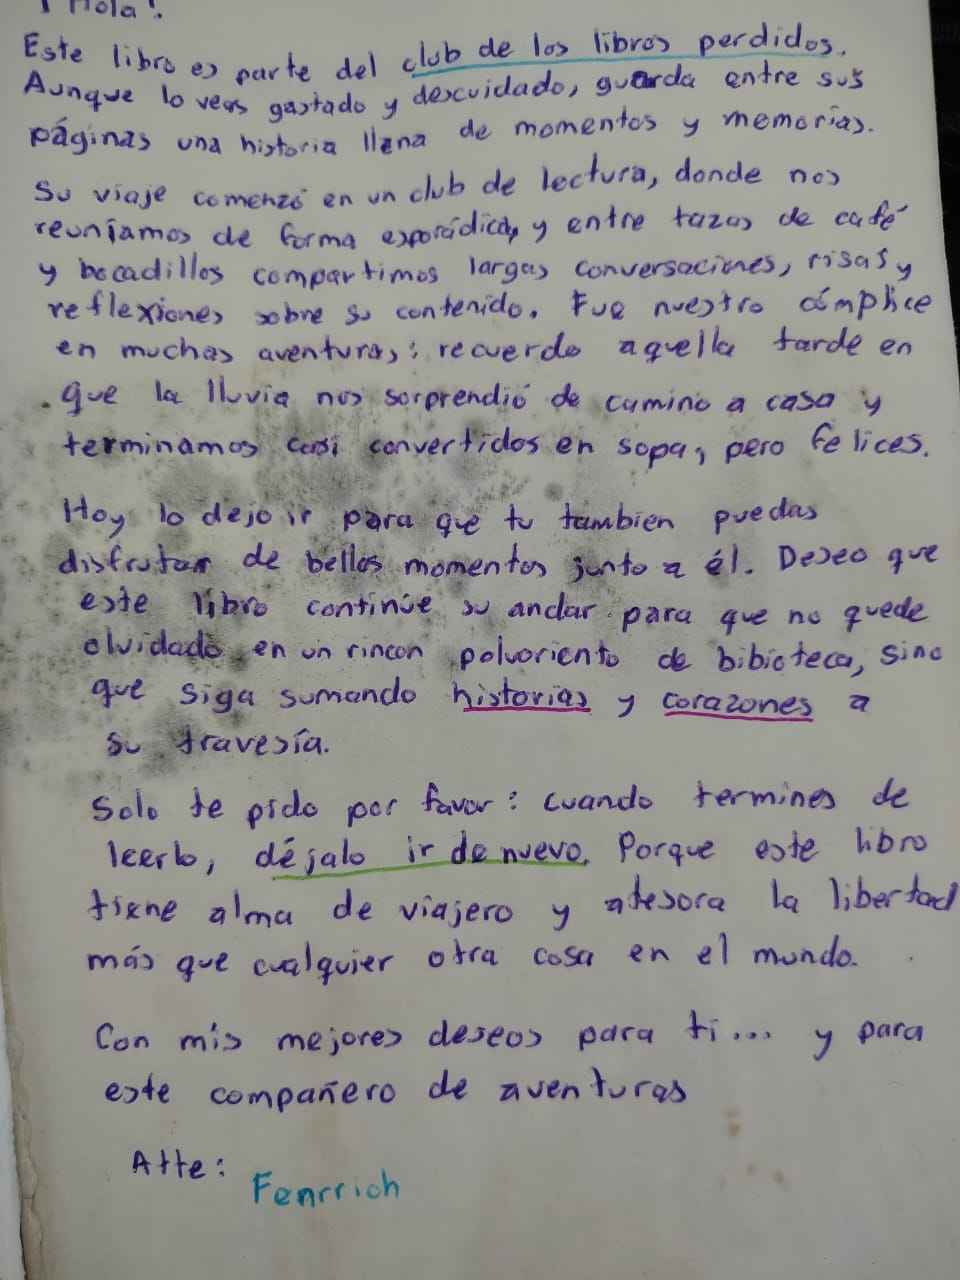 ¡Hola!
Este libro es parte del club de los libros perdidos.
Aunque lo veas gastado y descuidado, guarda entre sus
páginas una historia llena de momentos y memorias.
Su viaje comenzó en un club de lectura, donde nos
reuníamos de forma esporádica, y entre tazas de café
y bocadillos compartimos largas conversaciones, risas y
reflexiones sobre su contenido. Fue nuestro cómplice
en muchas aventuras; recuerdo aquella tarde en
que la lluvia nos sorprendió de camino a casa y
terminamos casi convertidos en sopa, pero felices.
Hoy lo dejo ir para que tu tambien puedas
disfrutar de bellos momentos junto a él. Deseo que
este libro continúe su andar para que no quede
olvidado en un rincon polvoriento de bibioteca, sino
que siga sumando historias y corazones a
su travesía.
Solo te pido por favor: cuando termines de
leerlo, déjalo ir de nuevo. Porque este libro
tiene alma de viajero y atesora la libertad
más que cualquier otra cosa en el mundo.
Con mis mejores deseos para ti... y para
este compañero de aventuras
Atte:
Fenrrich